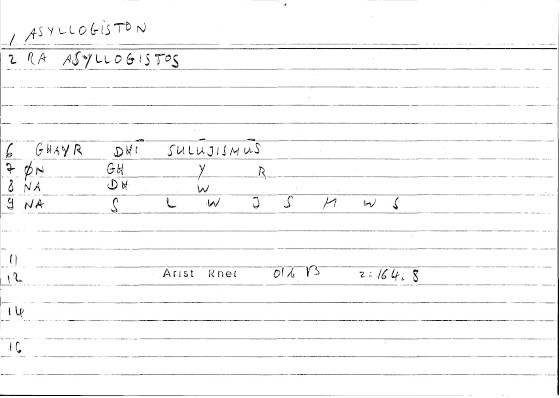 1 ASYLLOGISTON
2 RA ASYLLOGISTOS
6 GHAYR DHĪ SULŪJISMŪS
7 ØN GH Y R
8 NA DH W
9 NA S L W J S M W S
11
12 Arist Rhet 01b 13 2:164.8
14
16